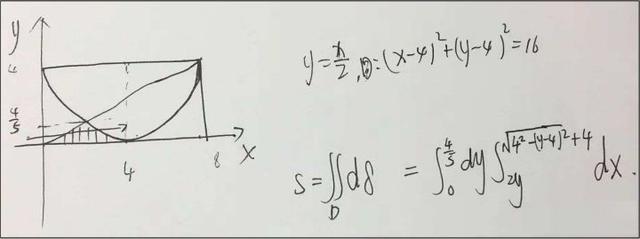 y
4
4/5
4
8
x
y=x/2, D:(x-4)²+(y-4)²=16
S=∬_D dδ = ∫_0^{4/5} dy ∫_{2y}^{√(4²-(y-4)²)+4} dx.